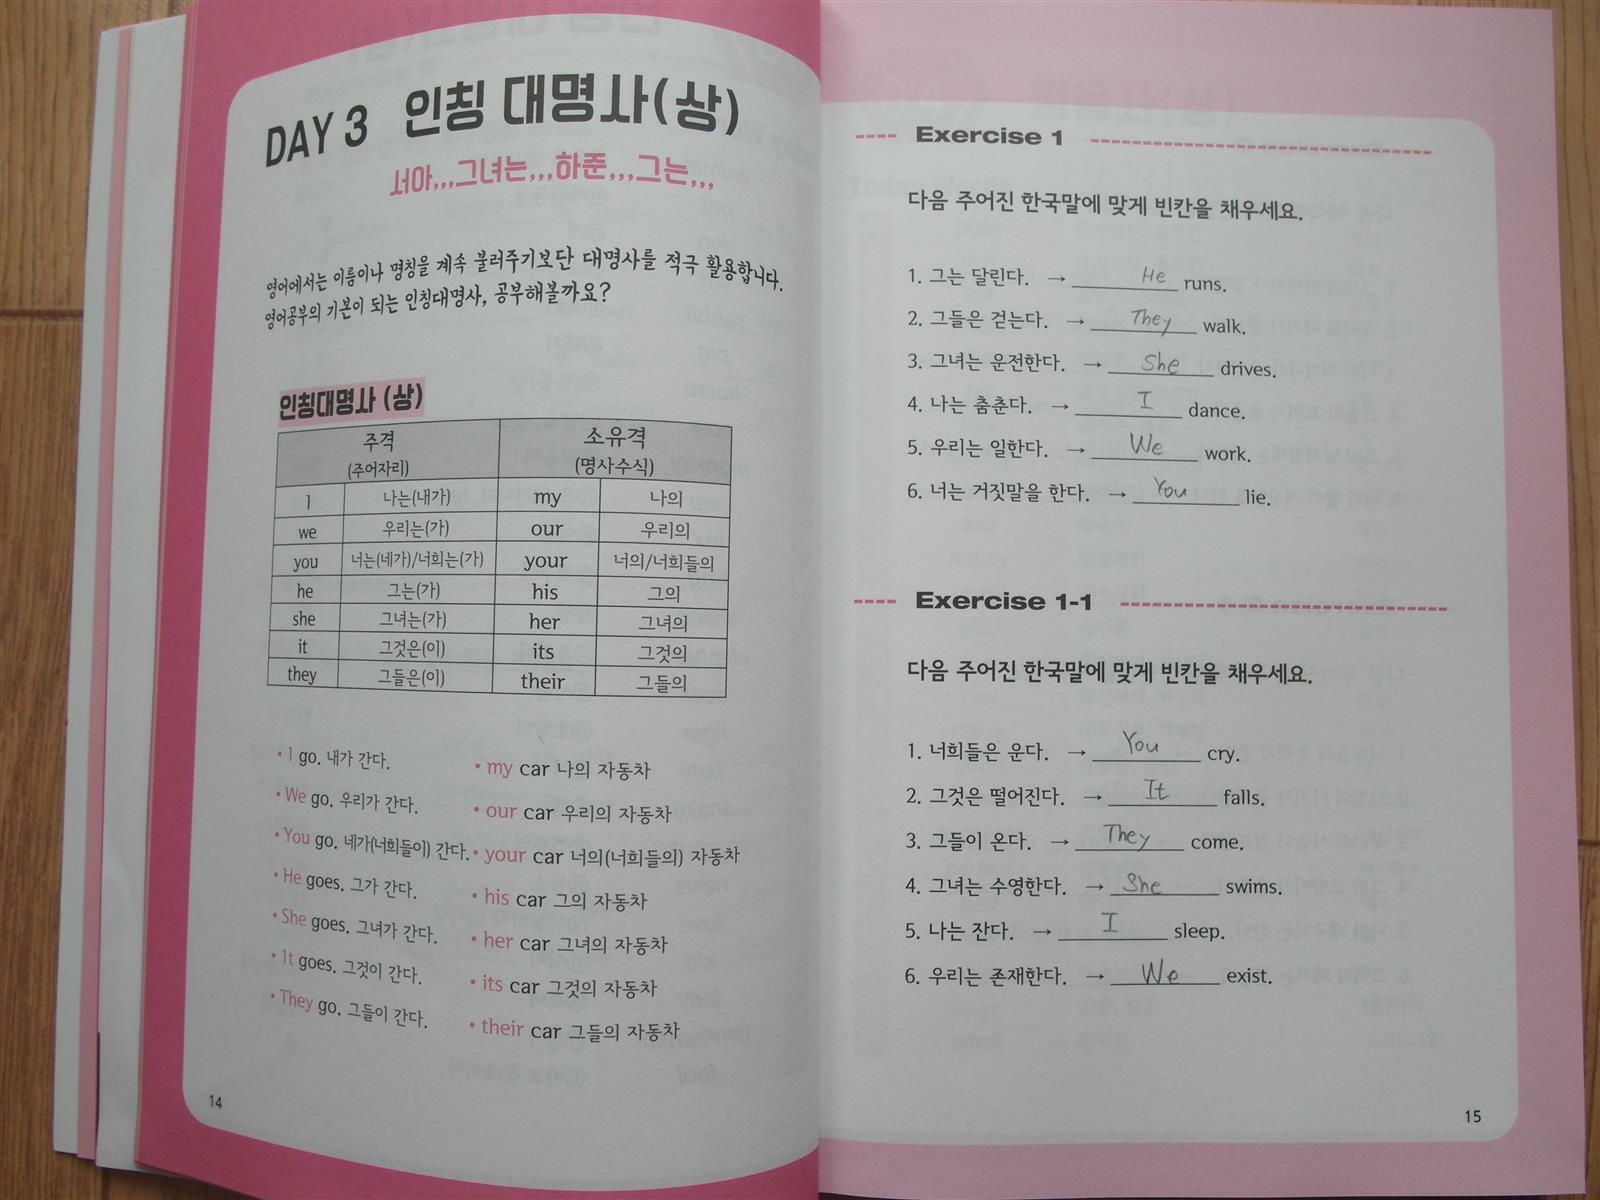 DAY 3 인칭 대명사(상)
서아,,,그녀는,,,하준,,,그는,,,
영어에서는 이름이나 명칭을 계속 불러주기보단 대명사를 적극 활용합니다.
영어공부의 기본이 되는 인칭대명사, 공부해볼까요?
인칭대명사 (상)
주격 소유격
(주어자리) (명사수식)
I 나는(내가) my 나의
we 우리는(가) our 우리의
you 너는(네가)/너희는(가) your 너의/너희들의
he 그는(가) his 그의
she 그녀는(가) her 그녀의
it 그것은(이) its 그것의
they 그들은(이) their 그들의
• I go. 내가 간다.
• We go. 우리가 간다.
• You go. 네가(너희들이) 간다.
• He goes. 그가 간다.
• She goes. 그녀가 간다.
• It goes. 그것이 간다.
• They go. 그들이 간다.
• my car 나의 자동차
• our car 우리의 자동차
• your car 너의(너희들의) 자동차
• his car 그의 자동차
• her car 그녀의 자동차
• its car 그것의 자동차
• their car 그들의 자동차
14
Exercise 1
다음 주어진 한국말에 맞게 빈칸을 채우세요.
1. 그는 달린다. → He runs.
2. 그들은 걷는다. → They walk.
3. 그녀는 운전한다. → She drives.
4. 나는 춤춘다. → I dance.
5. 우리는 일한다. → We work.
6. 너는 거짓말을 한다. → You lie.
Exercise 1-1
다음 주어진 한국말에 맞게 빈칸을 채우세요.
1. 너희들은 운다. → You cry.
2. 그것은 떨어진다. → It falls.
3. 그들이 온다. → They come.
4. 그녀는 수영한다. → She swims.
5. 나는 잔다. → I sleep.
6. 우리는 존재한다. → We exist.
15